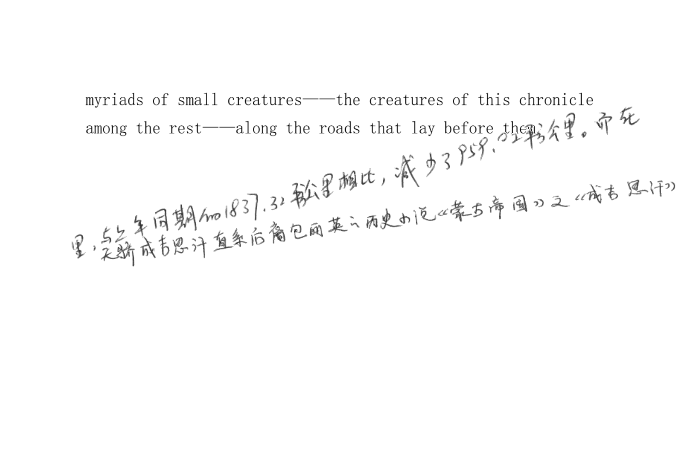 myriads of small creatures——the creatures of this chronicle
among the rest——along the roads that lay before them,
里,与上年同期的1837.32平方公里相比,减少了959.22平方公里。而死
天骄成吉思汗直系后裔包丽英之历史小说《蒙古帝国》之《成吉思汗》